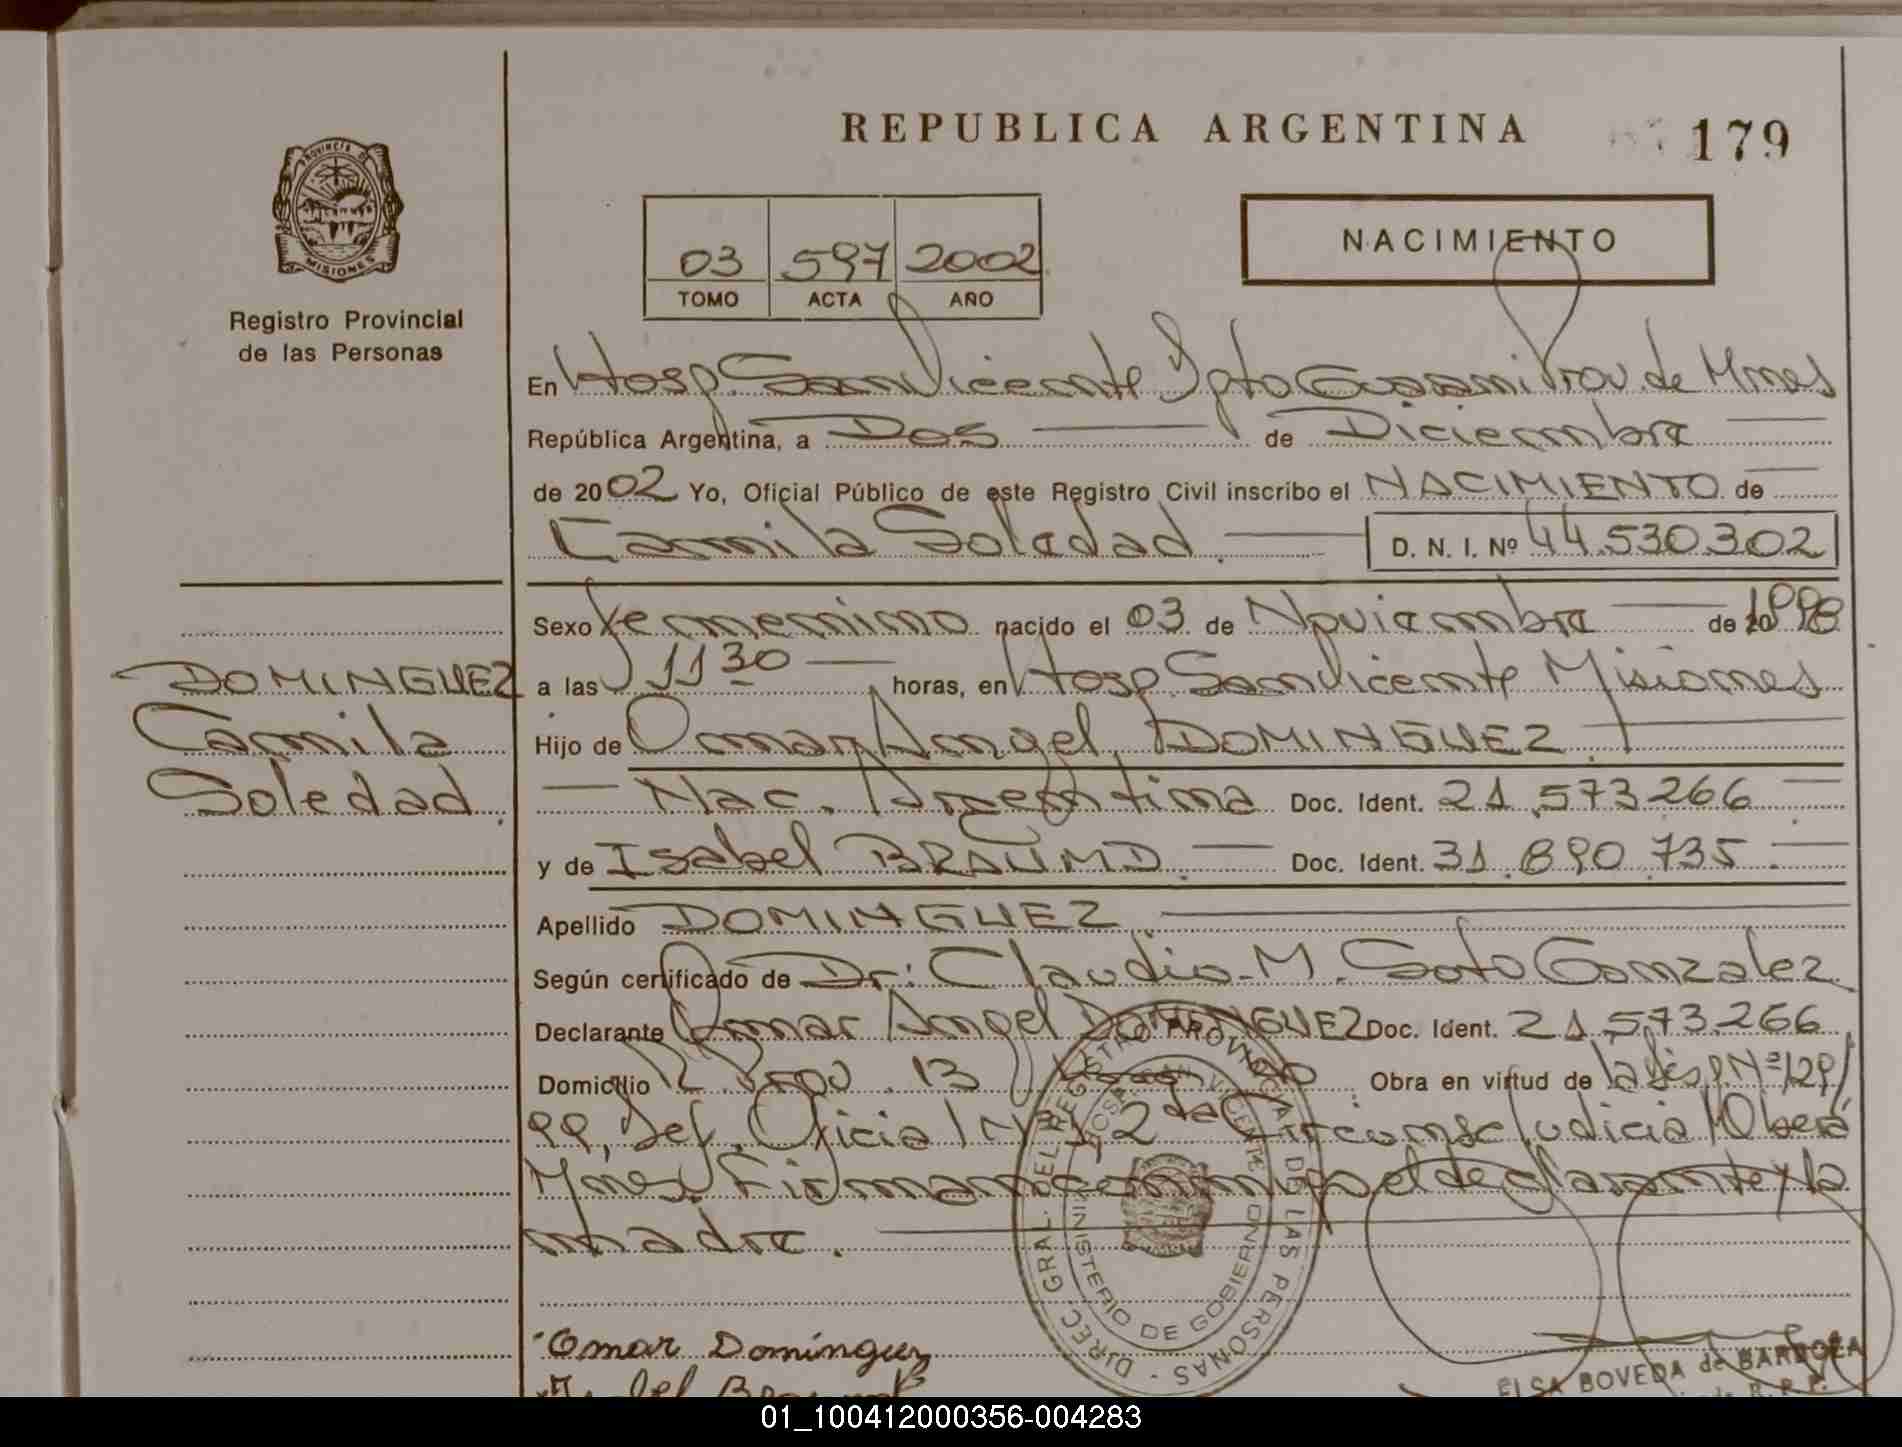 REPUBLICA ARGENTINA
179
PROVINCIA DE
MISIONES
Registro Provincial
de las Personas
03 597 2002
TOMO ACTA AÑO
NACIMIENTO
En Hosp. San Vicente Dpto Guarani Prov. de Mnes
República Argentina, a Dos de Diciembre
de 2002 Yo, Oficial Público de este Registro Civil inscribo el NACIMIENTO de
Camila Soledad. D. N. I. Nº 44.530.302
Sexo Femenino nacido el 03 de Noviembre de 1998
a las 11 30 horas, en Hosp. San Vicente Misiones
DOMINGUEZ
Camila
Soledad.
Hijo de Omar Angel DOMINGUEZ.
Nac. Argentina Doc. Ident. 21.573.266
y de Isabel BRAUND. Doc. Ident. 31.890.735.
Apellido DOMINGUEZ.
Según certificado de Dr. Claudio M. Soto Gonzalez
Declarante Omar Angel DOMINGUEZ Doc. Ident. 21.573.266
Domicilio 13 Obra en virtud de la Disp. Nº 129/
99, Def. Oficial Nº 1, 2da Circunsc Judicial Oberá
Mnes. Firman conmigo el declarante y la
madre.
DIREC. GRAL. DEL REGISTRO PROVINCIAL DE LAS PERSONAS
MINISTERIO DE GOBIERNO
HOSP. SAN VICENTE
Omar Dominguez
Isabel
ELSA BOVEDA de BARBOZA
01_100412000356-004283